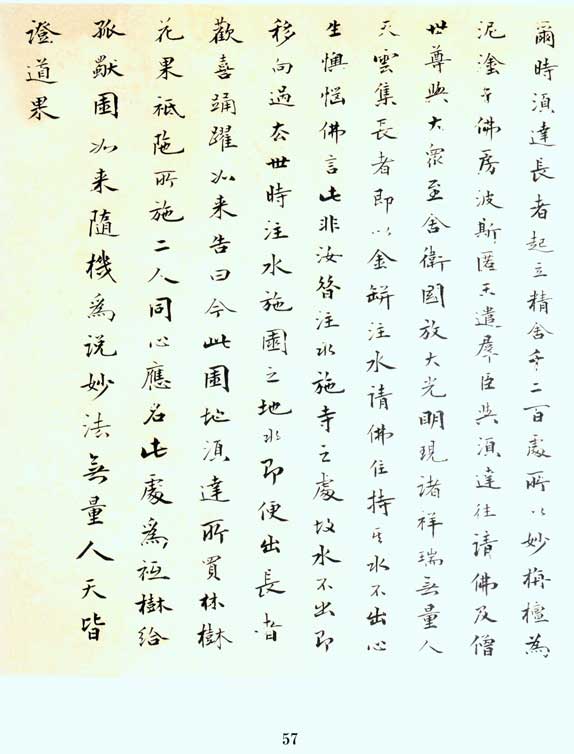 爾時須達長者起立精舍千二百處所以妙栴檀為
泥塗於佛房波斯匿王遣羣臣與須達往請佛及僧
世尊與大衆至舍衛國放大光明現諸祥瑞無量人
天雲集長者即以金缾注水請佛住持其水不出心
生懊惱佛言此非汝咎注水施寺之處故水不出即
移向過去世時注水施園之地水即便出長者
歡喜踊躍如来告曰今此園地須達所買林樹
花果祇陁所施二人同心應名此處為祇樹給
孤獨園如来隨機為説妙法無量人天皆
證道果
57